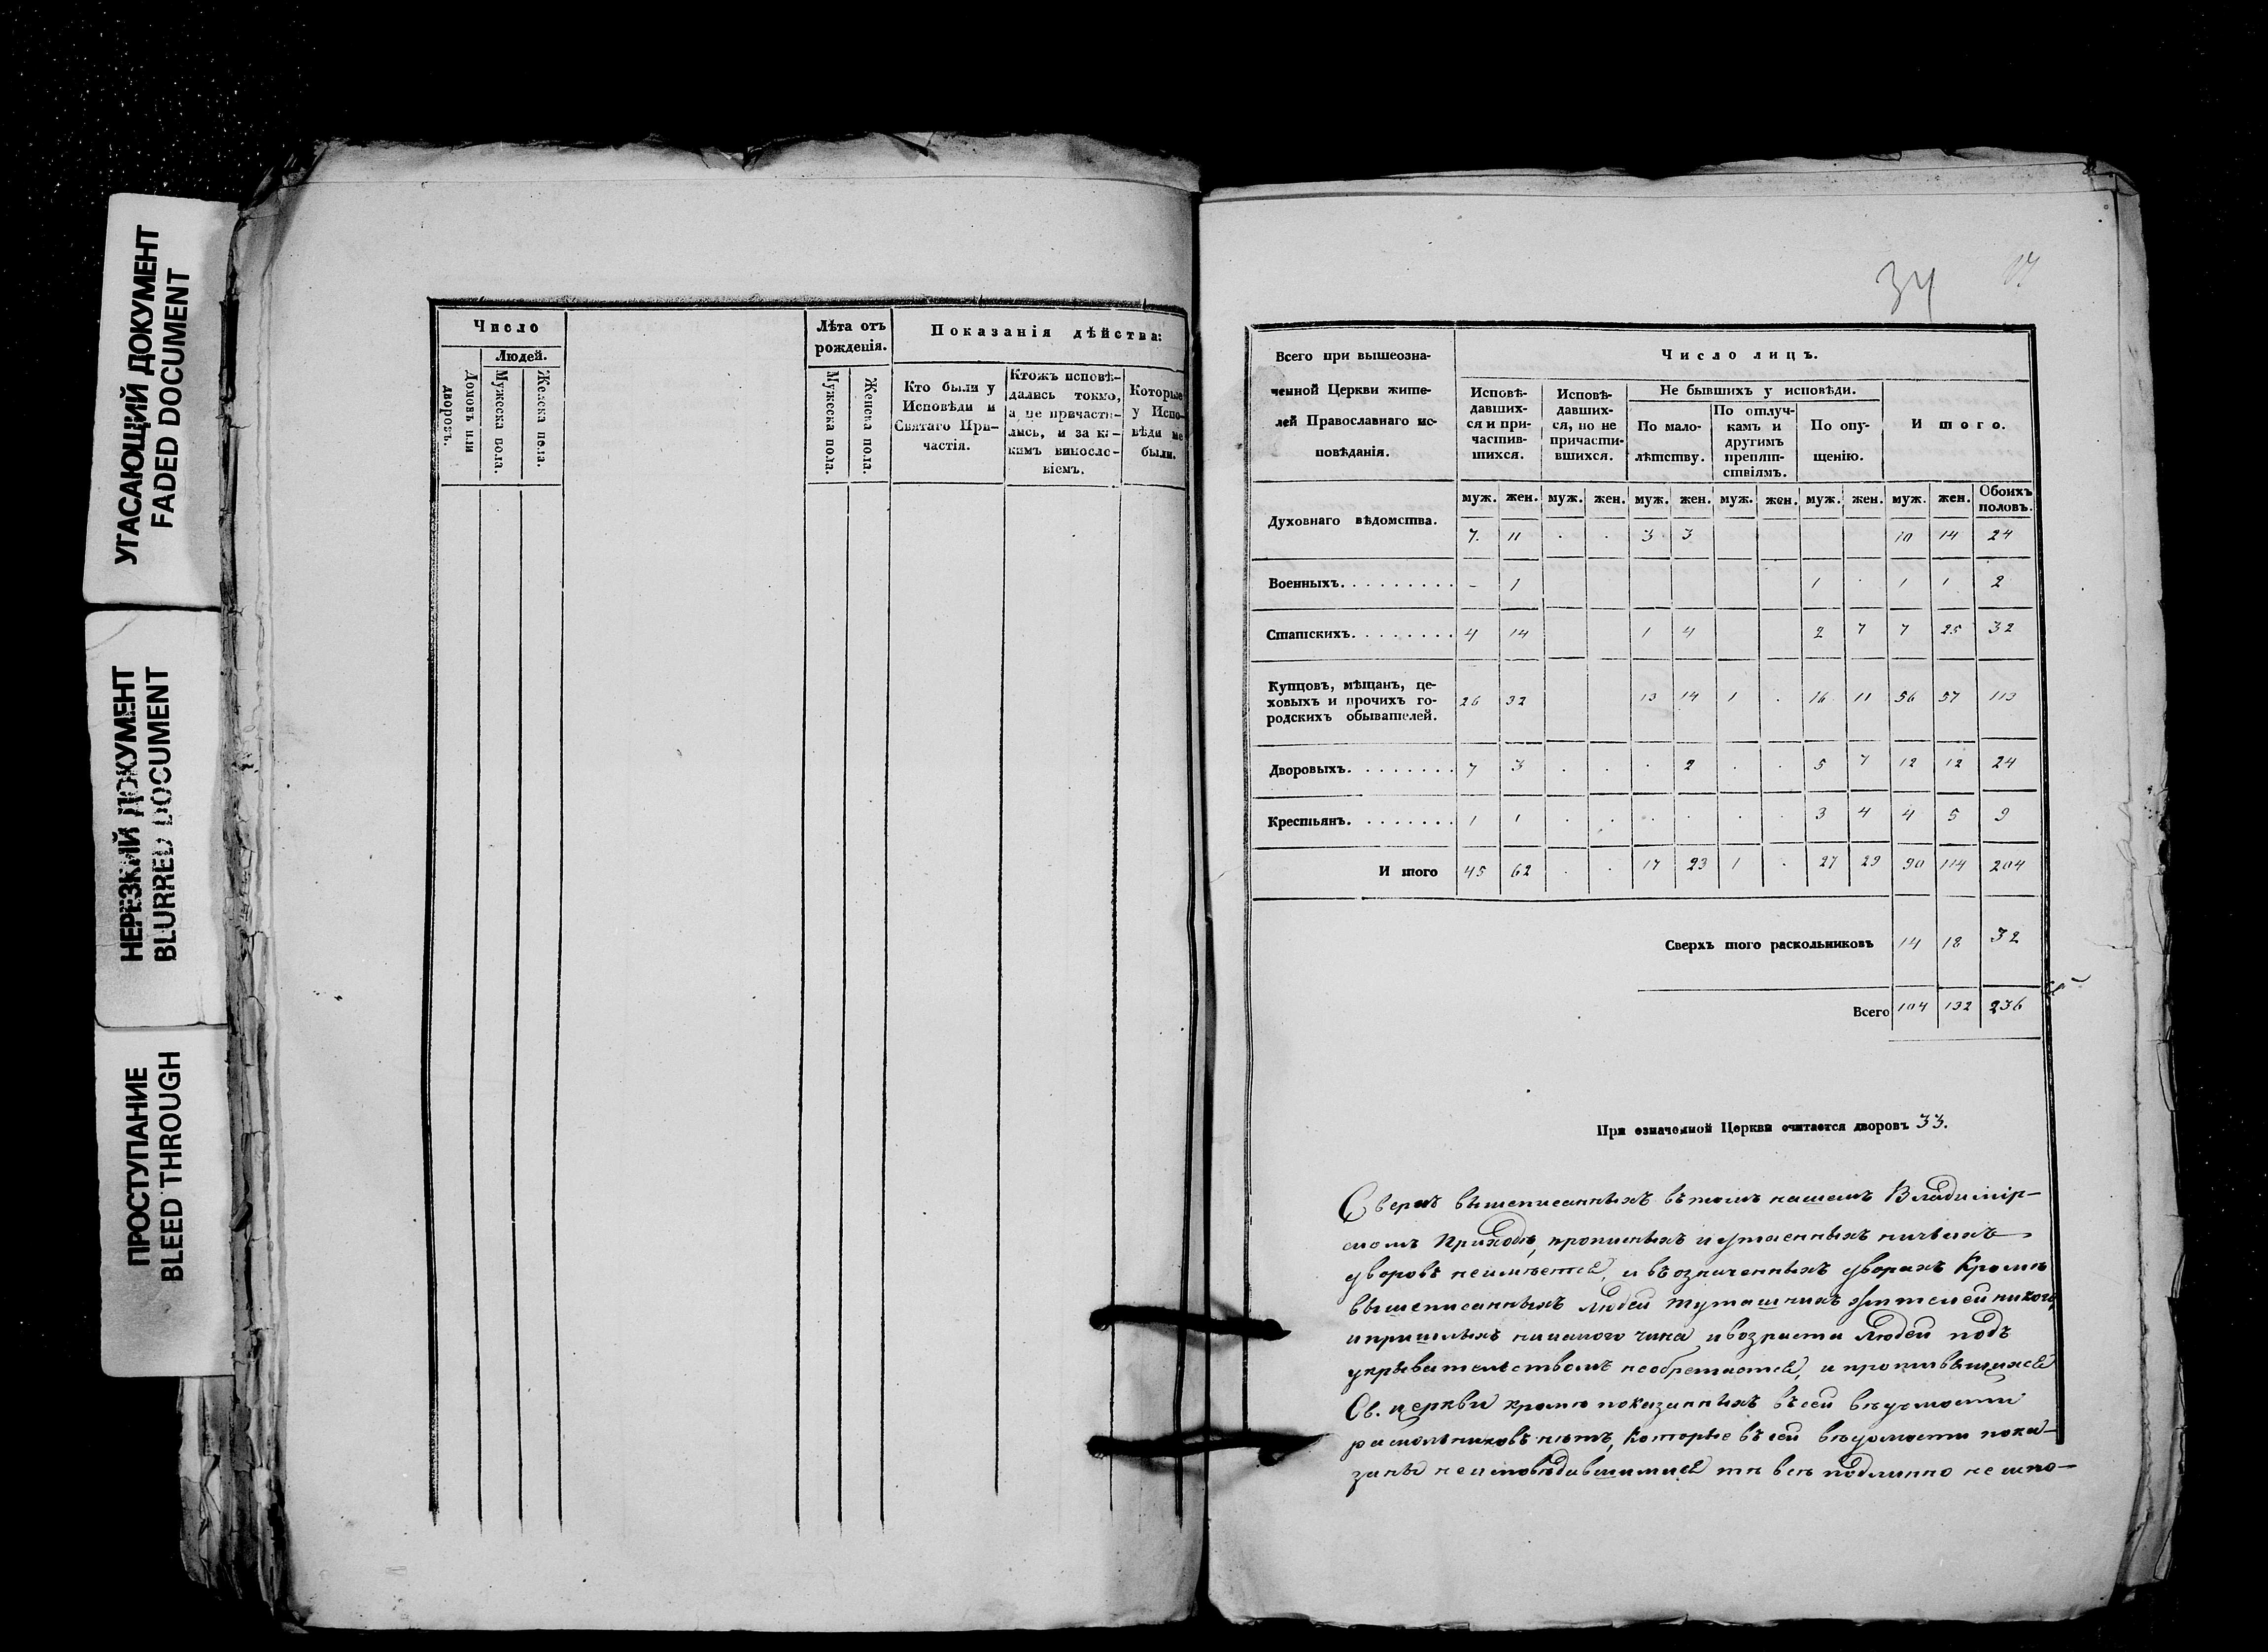 УГАСАЮЩИЙ ДОКУМЕНТ
FADED DOCUMENT
НЕРЕЗКИЙ ДОКУМЕНТ
BLURRED DOCUMENT
ПРОСТУПАНИЕ
BLEED THROUGH
Число
Людей.
Домовъ или дворовъ.
Мужеска пола.
Женска пола.
Лѣта отъ
рожденія.
Мужеска пола.
Женска пола.
Показанія дѣйства:
Кто были у
Исповѣди и
Святаго При-
частія.
Ктожъ исповѣ-
дались токмо,
а не причасти-
лись, и за ка-
кимъ виносло-
віемъ.
Которые
у Испо-
вѣди не
были.
34
Всего при вышеозна-
ченной Церкви жите-
лей Православнаго ис-
повѣданія.
Число лицъ.
Исповѣ-
давших-
ся и при-
частив-
шихся.
Исповѣ-
давших-
ся, но не
причасти-
вшихся.
Не бывшихъ у исповѣди.
По мало-
лѣтству.
По отлуч-
камъ и
другимъ
препят-
ствіямъ.
По опу-
щенію.
Итого.
муж. жен. муж. жен. муж. жен. муж. жен. муж. жен. муж. жен. Обоихъ
половъ.
Духовнаго вѣдомства. 7. 11 . . 3 3 10 14 24
Военныхъ. - 1 1 . 1 1 2
Статскихъ. 4 14 1 4 2 7 7 25 32
Купцовъ, мѣщанъ, це-
ховыхъ и прочихъ го-
родскихъ обывателей.
26 32 13 14 1 . 16 11 56 57 113
Дворовыхъ. 7 3 . . . 2 . . 5 7 12 12 24
Крестьянъ. 1 1 . . . . . . 3 4 4 5 9
Итого 45 62 . . 17 23 1 . 27 29 90 114 204
Сверхъ того раскольниковъ 14 18 32
Всего 104 132 236
При означенной Церкви считается дворовъ 33.
Сверхъ вышеписанныхъ въ томъ нашемъ Владимір-
скомъ Приходѣ, прописныхъ и утаенныхъ ничьихъ
дворовъ неимѣется, и въ означенныхъ дворахъ Кромѣ
вышеписанныхъ людей тутошнихъ жителей никого,
и пришлыхъ никакого чина и возраста людей подъ
укрывательствомъ необретается, и противящихся
Св. церкви кромѣ показанныхъ въ сей вѣдомости
раскольниковъ нѣтъ, Которые въ сей вѣдомости пока-
заны неисповѣдавшимися тѣ всѣ подлинно не испо-